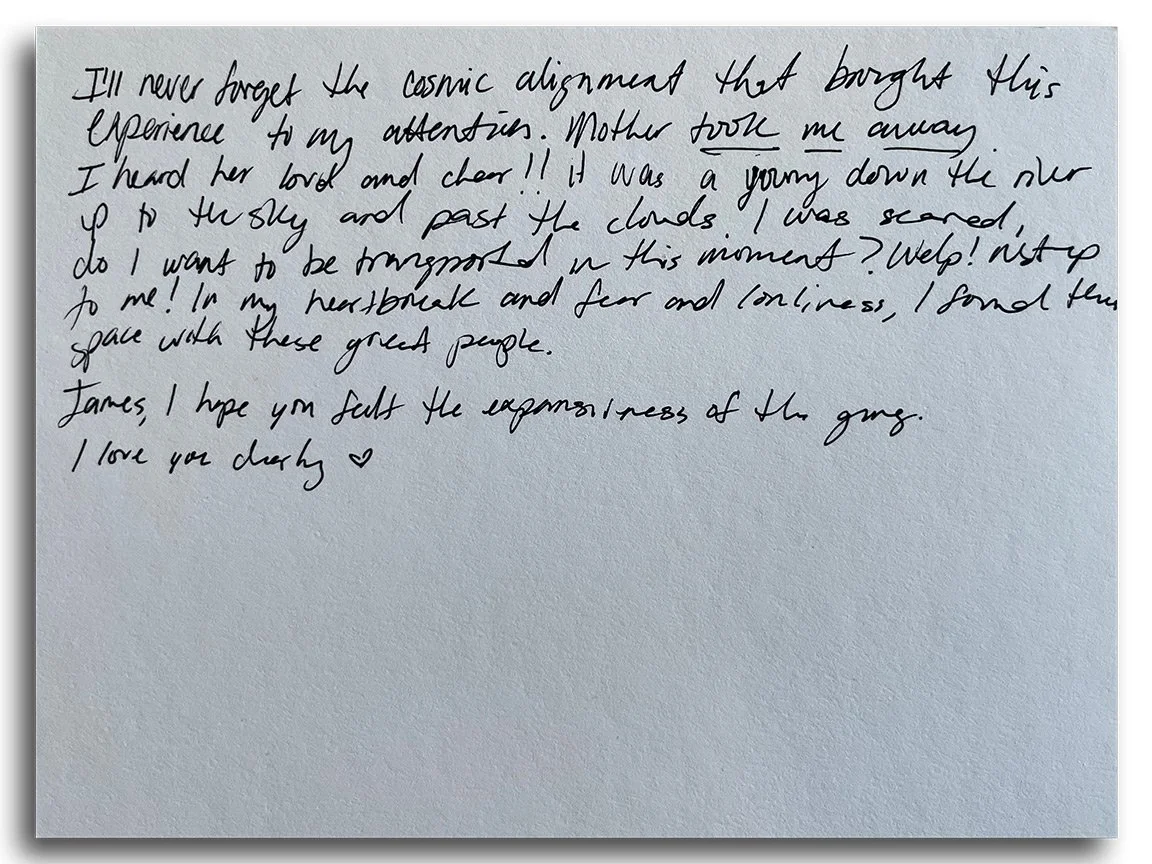 I'll never forget the cosmic alignment that bought this
experience to my attention. Mother took me away.
I heard her loud and clear!! it was a down the river
up to the sky and past the clouds. I was scared,
do I want to be transported in this moment? Welp! not up
to me! In my heartbreak and fear and lonliness, I found this
space with these great people.
James, I hope you felt the expansiveness of the gong.
I love you dearly ♡